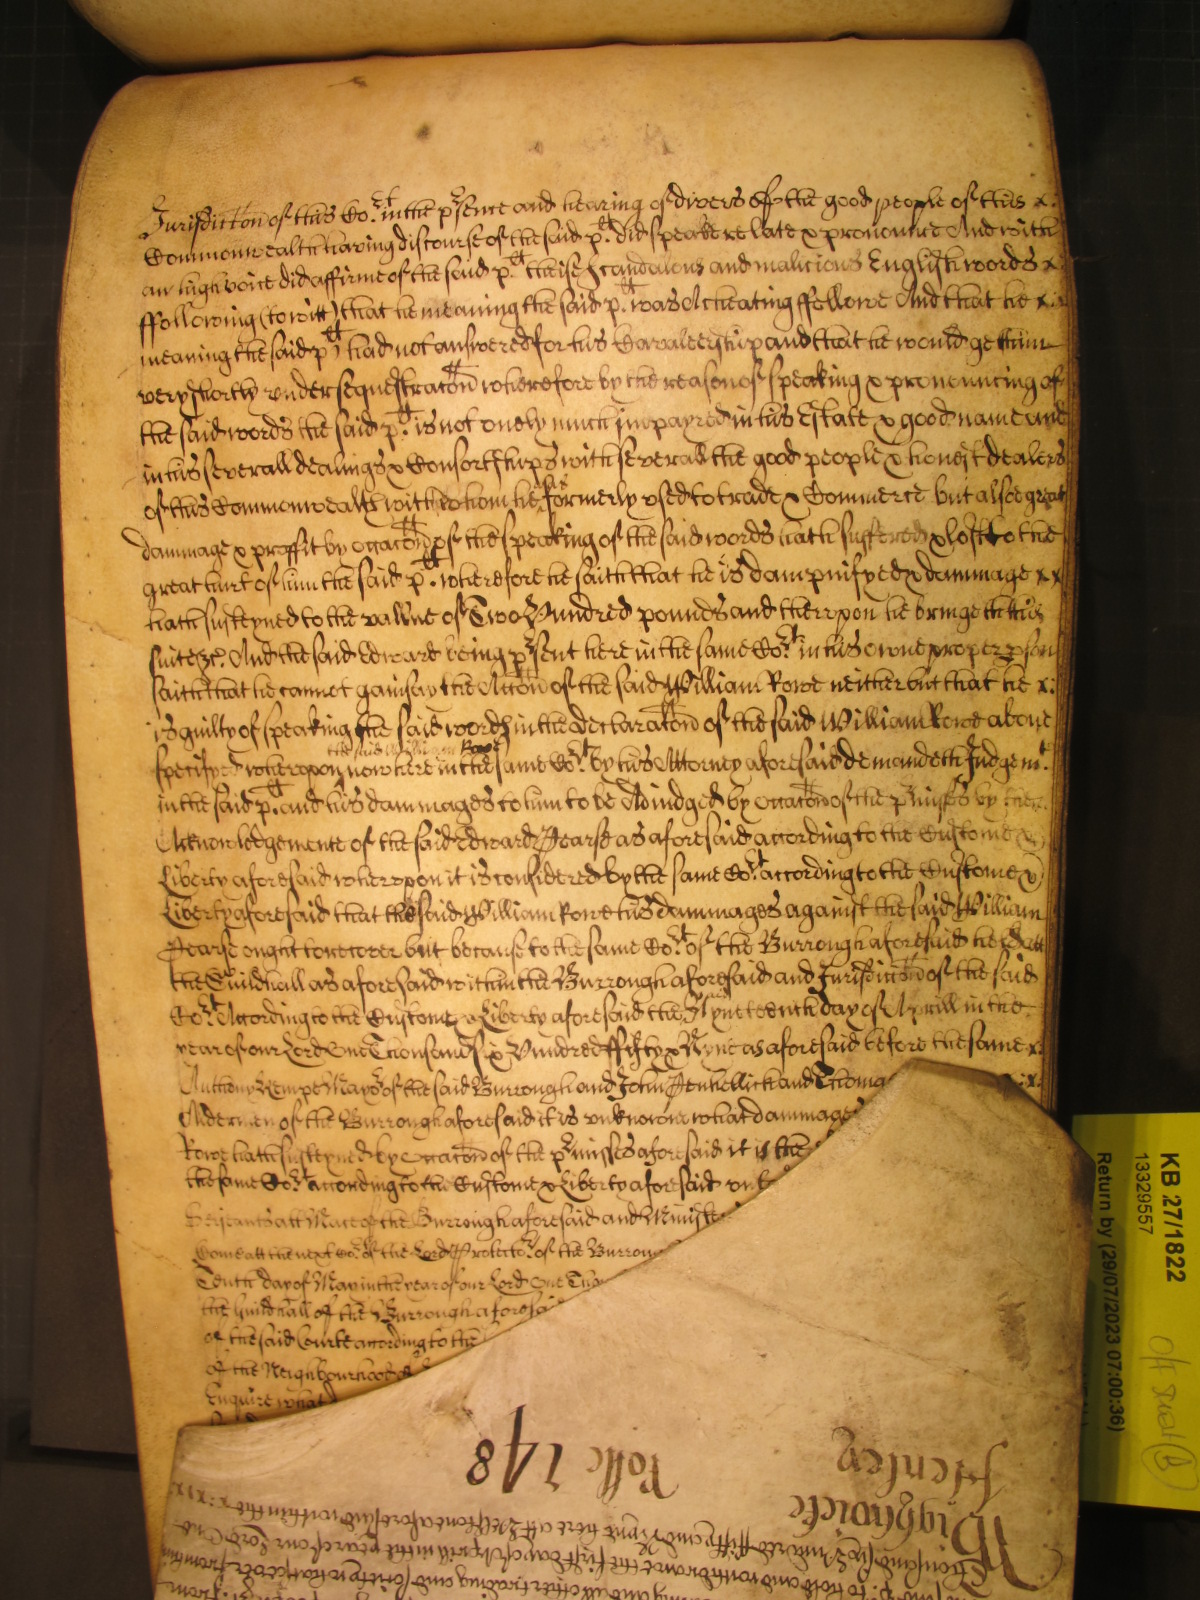 Jurisdicton of this Cort in the presence and hearing of divers of the good people of this x.
Commonwealth having discourse of the said pt did speake relate & pronounce And with
an high voice did affirme of the said pt theise scandalous and malicious English words x
ffollowing (to witt) that he meaning the said pt was A cheating ffellowe And that he x.
meaning the said pt had not answered for his Cavaleershipp and that he would gett him
very shortly under sequestraton wherefore by the reason of speaking & pronouncing of
the said words the said pt is not onely much impayred in his Estate & good name and
in his severall dealings & Consortshipps with severall the good people & honest dealers
of this Commonwealth with whom he formerly used to trade & Commerce but alsoe great
dammage & proffit by occaton of the speaking of the said words hath suffered & lost to the
great hurt of him the said pt wherefore he saith that he is dampnifyed & dammage x x
hath susteyned to the vallue of Two Hundred pounds and therupon he bringeth his
suite &c. And the said Edward being present here in the same Cort in his owne proper pson
saith that he cannot gainsay the Acton of the said William Rowe neither but that he x:
is guilty of speaking the said words in the declaraton of the said William Rowe above
the said William Rowe
specifyed wherupon now here in the same Cort by his Attorney aforesaid demandeth Judgemt
in the said pt and his dammages to him to be Adiudged by occaton of the pmisses by
Acknowledgemente of the said Edward Pearse as aforesaid according to the Custome &
Liberty aforesaid wherupon it is considered by the same Cort according to the Custome &
Liberty aforesaid that the said William Rowe his dammages against the said William
Pearse ought to recover but because to the same Cort of the Burrough aforesaid held att
the Guildhall as aforesaid within the Burrough aforesaid and Jurisdicton of the said
Cort According to the Custome & Liberty aforesaid the Nyneteenth day of Aprill in the
yeare of our Lord One Thousand six Hundred ffifty & Nyne as aforesaid before the same x.
Anthony Kempe Mayor of the said Burrough and John Penhellick and Thomas
Aldermen of the Burrough aforesaid it is unknowne what dammages
Rowe hath susteyned by occaton of the pmisses aforesaid it is the
the same Cort according to the Custome & Liberty aforesaid
Serjeants att Mace of the Burrough aforesaid and Ministe
Come att the next Cort of the Lord Protector of the Burrou
Tenth day of May in the yeare of our Lord One Thou
the Guildhall of the Burrough aforesai
of the said Courte according to the
of the Neighbourhood of
Enquire what
Rolle 748
Henley
Wightwicke
KB 27/1822
13329557
Return by (29/07/2023 07:00:36)